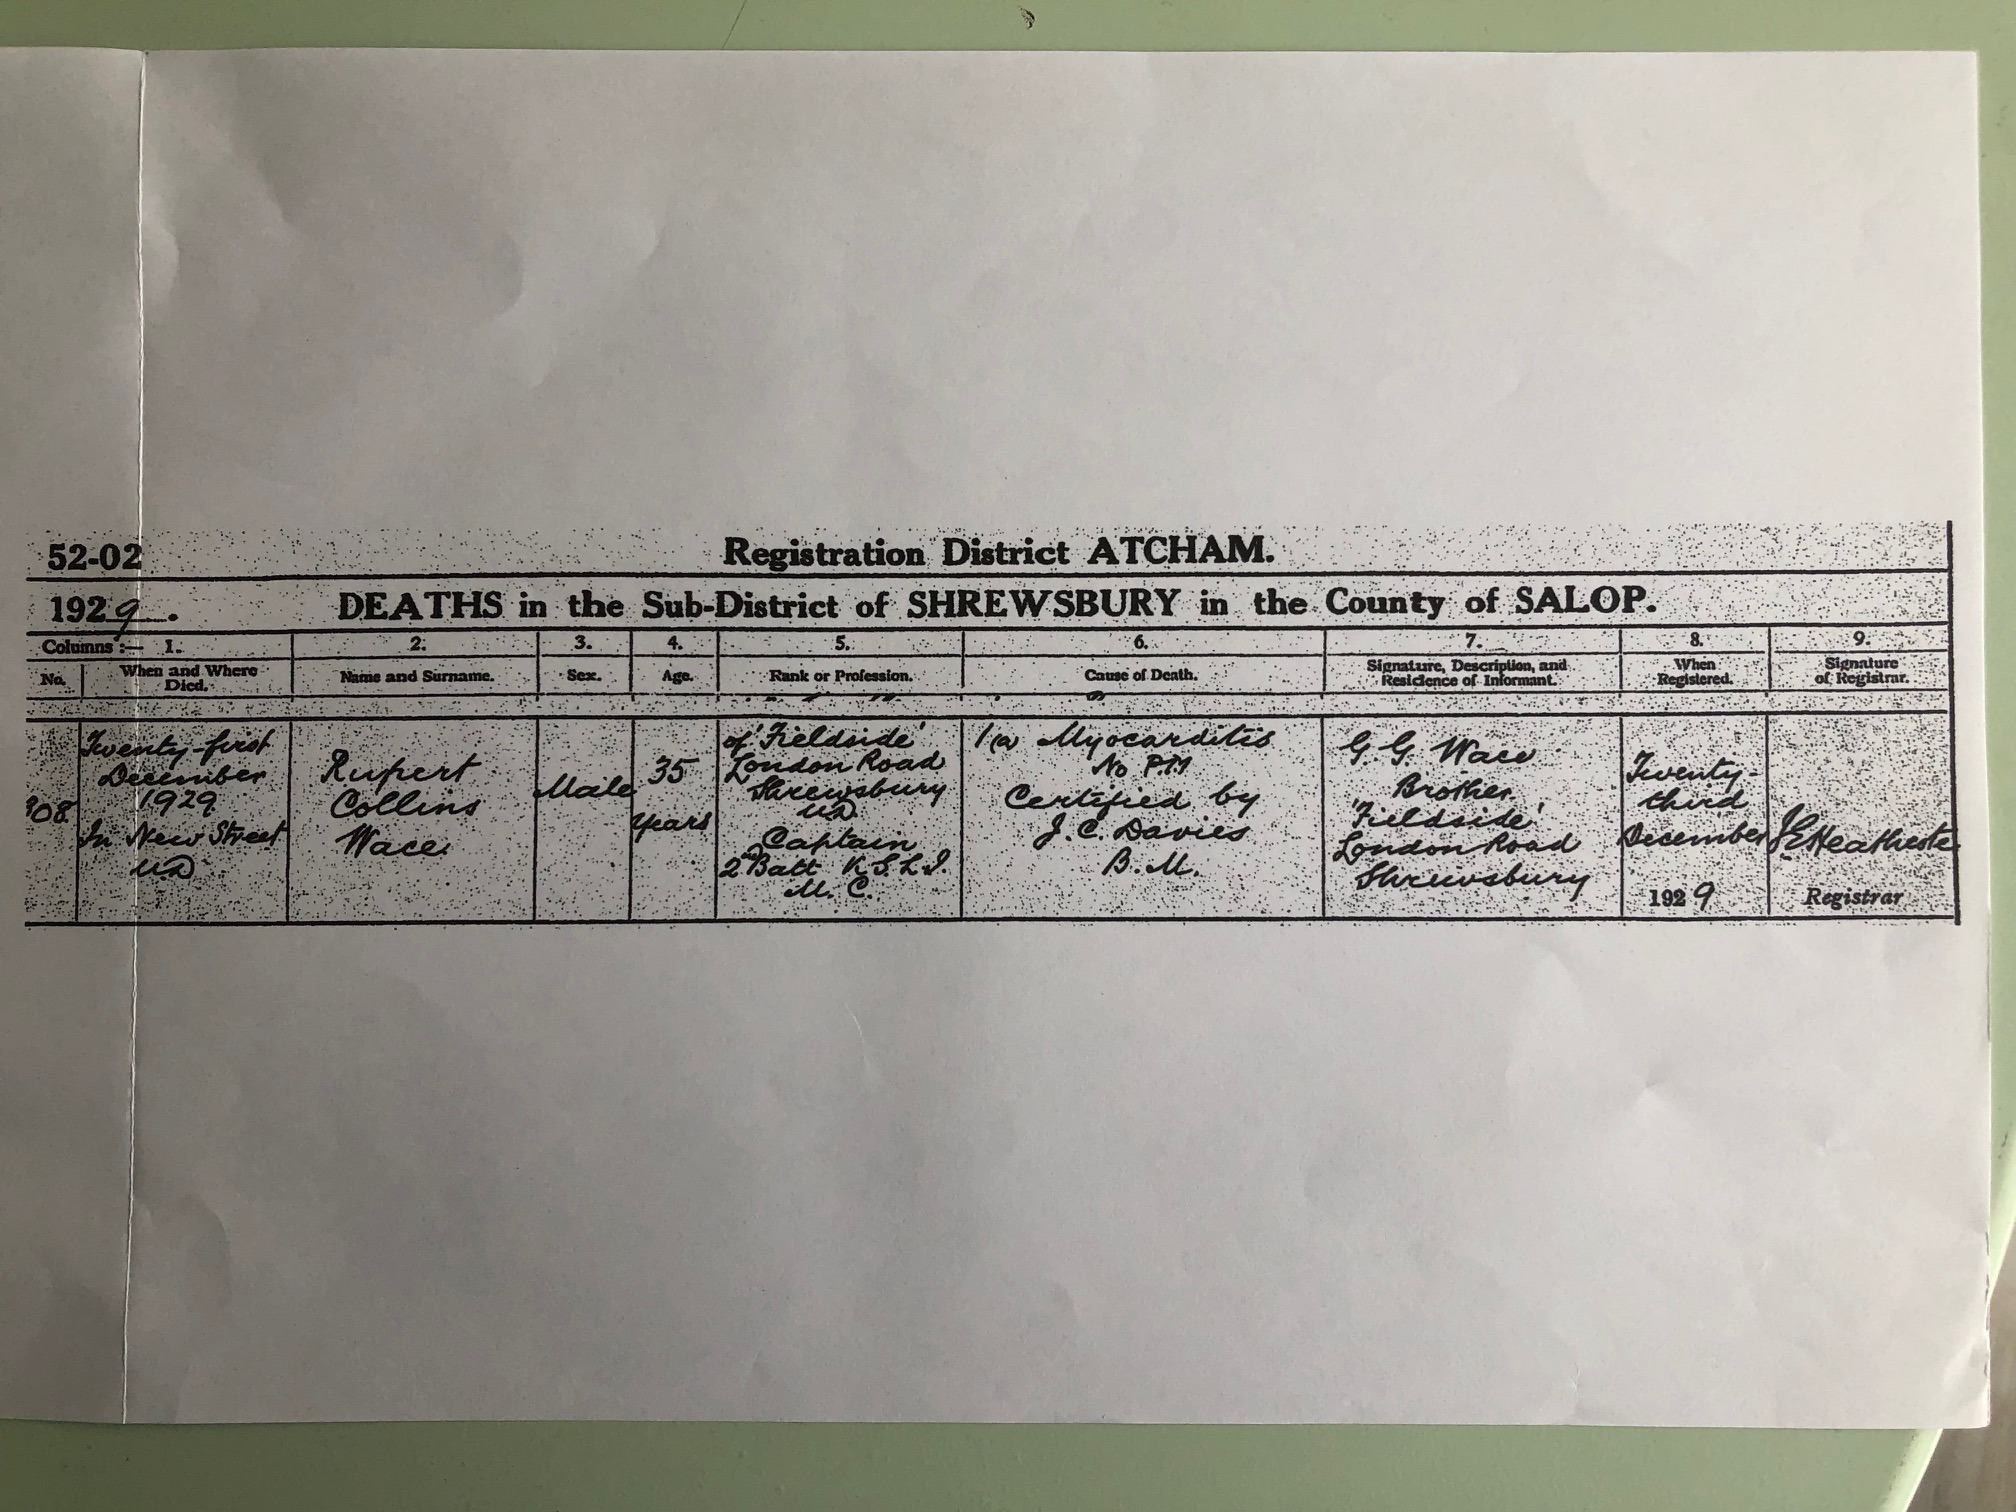 52-02 Registration District ATCHAM.
1929. DEATHS in the Sub-District of SHREWSBURY in the County of SALOP.
Columns :— 1. 2. 3. 4. 5. 6. 7. 8. 9.
No. When and Where Died. Name and Surname. Sex. Age. Rank or Profession. Cause of Death. Signature, Description, and Residence of Informant. When Registered. Signature of Registrar.
308
Twenty-first
December
1929
In New Street
UD
Rupert
Collins
Wace
Male
35
years
of 'Fieldside'
London Road
Shrewsbury
UD
Captain
2nd Batt K.S.L.I.
M.C.
1(a) Myocarditis
No P.M
Certified by
J. C. Davies
B.M.
G. G. Wace
Brother
'Fieldside'
London Road
Shrewsbury
Twenty-
third
December
1929
Registrar